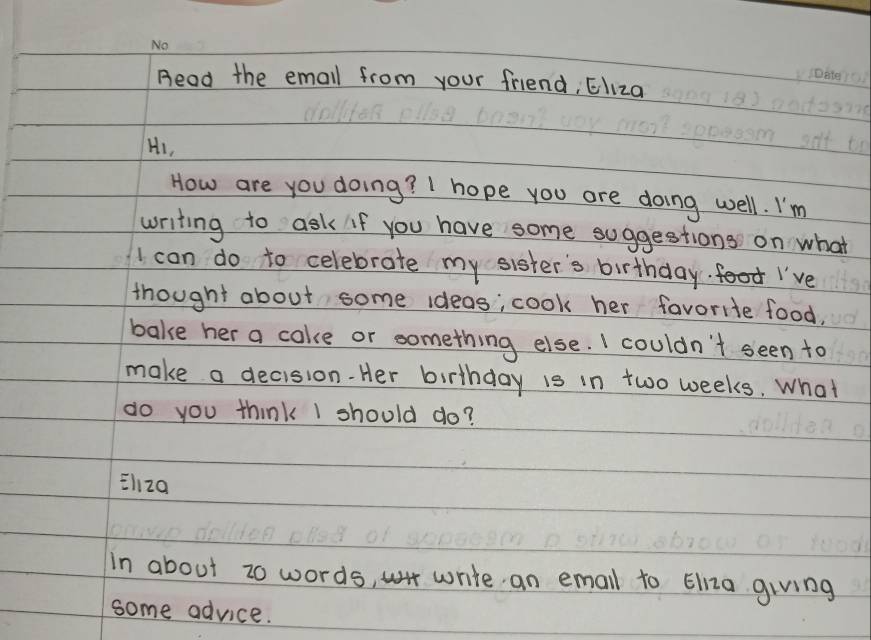 No
Date
Read the email from your friend, Eliza
Hi,
How are you doing? I hope you are doing well. I'm
writing to ask if you have some suggestions on what
I can do to celebrate my sister's birthday. food I've
thought about some ideas; cook her favorite food,
bake her a cake or something else. I couldn't seen to
make a decision. Her birthday is in two weeks. What
do you think I should do?
Eliza
In about 20 words, write an email to Eliza giving
some advice.